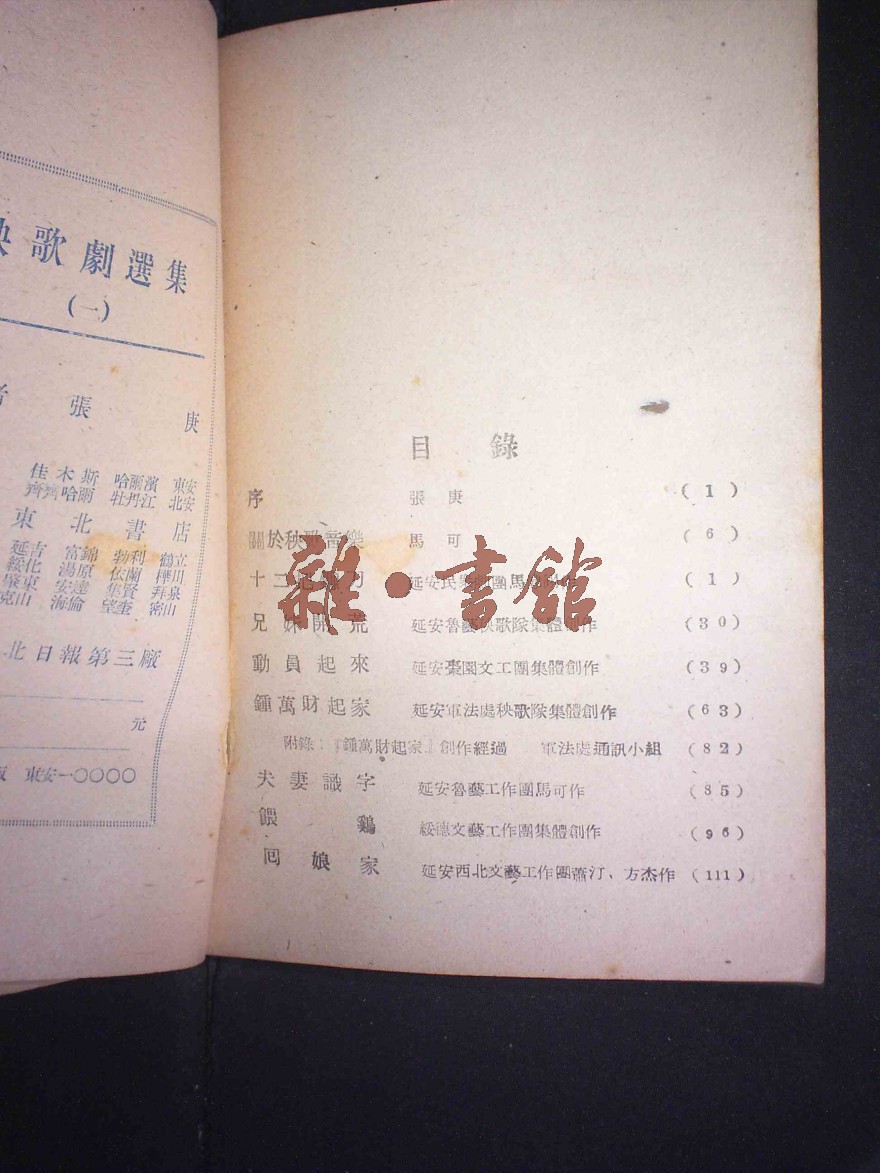 歌劇選集
(一)
張庚
佳木斯 哈爾濱 東安
齊齊哈爾 牡丹江 北安
東北書店
延吉 富錦 勃利 鶴立
綏化 湯原 依蘭 樺川
肇東 安達 集賢 拜泉
克山 海倫 望奎 密山
北日報第三廠
元
東安一〇〇〇〇
目錄
序 張庚 (1)
關於秧歌音樂 馬可 (6)
十二 延安民 團馬 (1)
兄妹開荒 延安魯藝秧歌隊集體創作 (30)
動員起來 延安棗園文工團集體創作 (39)
鍾萬財起家 延安軍法處秧歌隊集體創作 (63)
附錄：『鍾萬財起家』創作經過 軍法處通訊小組 (82)
夫妻識字 延安魯藝工作團馬可作 (85)
餵鷄 綏德文藝工作團集體創作 (96)
囘娘家 延安西北文藝工作團蕭汀、方杰作 (111)
雜·書館